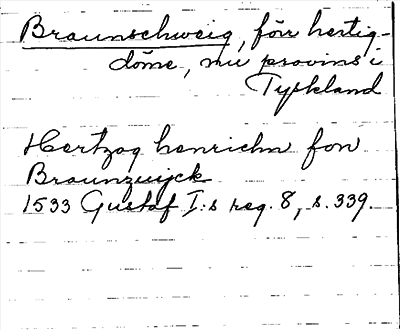 Braunschweig, förr hertig-
döme, nu provins i
Tyskland
Hertzog henrichn fon
Braunzuyck
1533 Gustaf I:s reg. 8, s. 339.